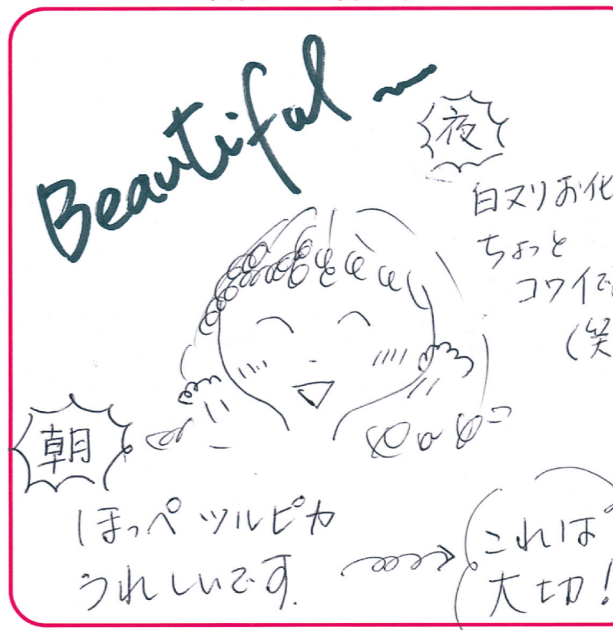 Beautiful～
夜
白ヌリお化
ちょっと
コワイで
(笑
朝
ほっぺ ツルピカ
うれしいです.
これは
大切!